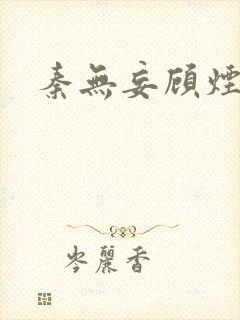 秦無妄顧煙
岑麗香